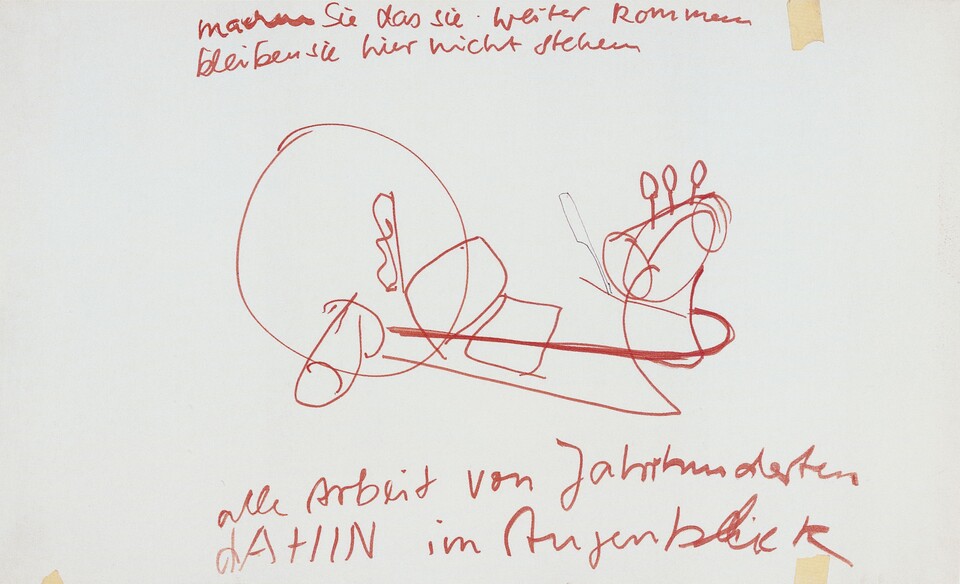 machen Sie das sie weiter kommen
bleiben sie hier nicht stehen
alle Arbeit von Jahrhunderten
dAHIN im Augenblick